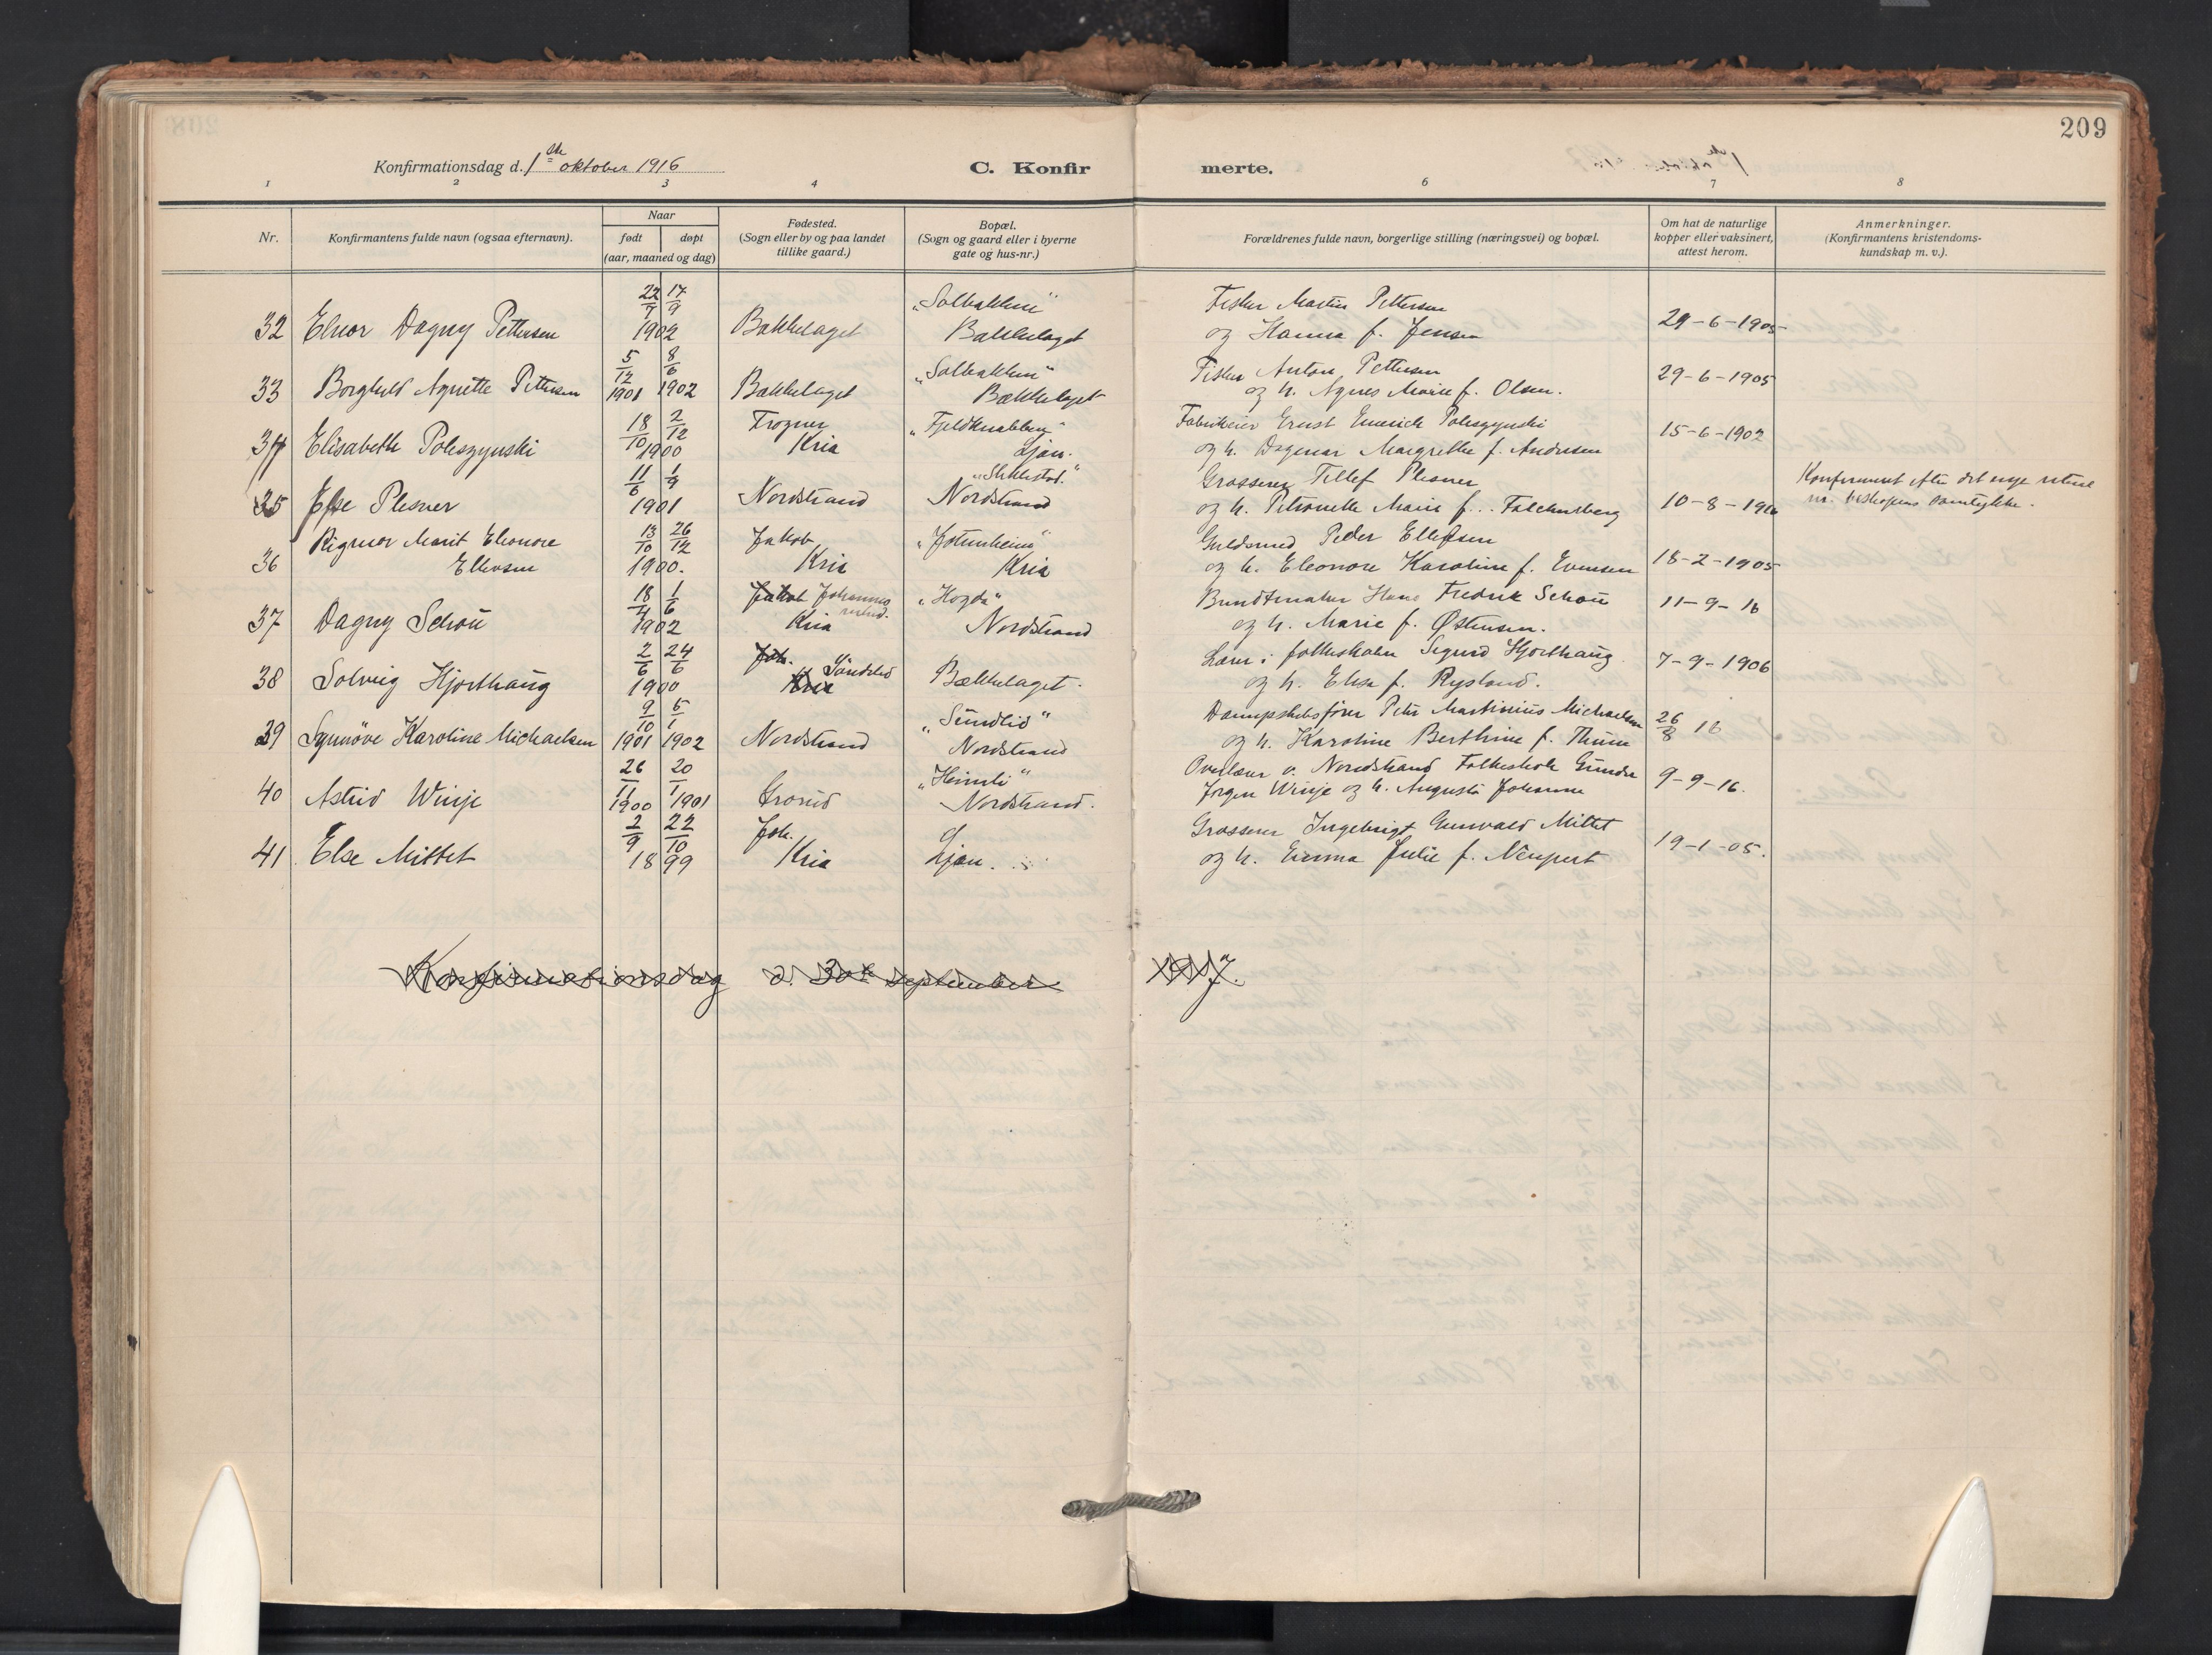 209
Konfirmationsdag d. 1ste oktober 1916
C. Konfirmerte.
1 2 3 4 6 7 8
Nr.
Konfirmantens fulde navn (ogsaa efternavn).
Naar
født døpt
(aar, maaned og dag)
Fødested.
(Sogn eller by og paa landet
tillike gaard.)
Bopæl.
(Sogn og gaard eller i byerne
gate og hus-nr.)
Forældrenes fulde navn, borgerlige stilling (næringsvei) og bopæl.
Om hat de naturlige
kopper eller vaksinert,
attest herom.
Anmerkninger.
(Konfirmantens kristendoms-
kundskap m. v.).
22/7 17/9 „Solbakken" Fisker Martin Pettersen
32 Elnor Dagny Pettersen 1902 Bækkelaget Bækkelaget og Hanna f. Jensen 29-6-1905
5/12 8/6 „Solbakken" Fisker Anton Pettersen
33 Borghild Agnette Pettersen 1901 1902 Bækkelaget Bækkelaget og h. Agnes Marie f. Olsen. 29-6-1905
18/10 2/12 Frogner „Fjeldknabben" Fabrikeier Ernst Emerich Poleszynski
34 Elisabeth Poleszynski 1900 Kria Ljan. og h. Dagmar Margrethe f. Andersen 15-6-1902
11/6 1/9 Grosserer Tellef Plesner Konfirmert efter det nye ritual
35 Else Plesner 1901 Nordstrand Nordstrand og h. Petronelle Marie f. Falchenberg 10-8-1916 m. biskopens samtykke.
Rigmor Marit Eleonore 13/10 26/12 Jakob „Jotunheim" Guldsmed Peder Ellefsen
36 Ellevsen 1900. Kria Kria og h. Eleonore Karoline f. Evensen 18-2-1905
18/4 1/6 Jakob Johannes „Høgda" Bundtmaker Hans Fredrik Schou
37 Dagny Schou 1902 Kria Nordstrand og h. Marie f. Østensen. 11-9-16
2/6 24/6 Joh. Søndeled Lærer i folkeskolen Sigurd Hjorthaug
38 Solveig Hjorthaug 1900 Kria Bækkelaget. og h. Elise f. Rysland. 7-9-1906
9/10 5/1 „Sundlid" Dampskibsfører Peter Martinius Michaelsen
39 Synnöve Karoline Michaelsen 1901 1902 Nordstrand Nordstrand og h. Karoline Berthine f. Thune 26/8 16
26/11 20/1 „Heimli" Overlærer v. Nordstrand Folkeskole Gunder
40 Astrid Winje 1900 1901 Grorud Nordstrand. Jørgen Winje og h. Augusta Johanne 9-9-16.
2/9 22/10 Joh. Grosserer Ingebrigt Gunvald Mittet
41 Else Mittet 1899 Kria Ljan. og h. Emma Julie f. Neupert 19-1-05.
Konfirmationsdag d. 30te september 1917.